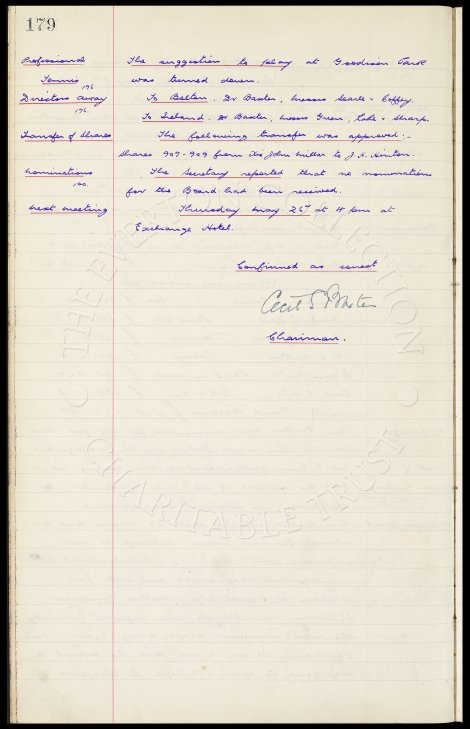 179
Professional Tennis 176 The suggestion to play at Goodison Park
was turned down.
Directors away 176 To Bolton, Dr Baxter, Messrs Searle & Coffey.
To Ireland, Dr Baxter, Messrs Green, & Sharp.
Transfer of Shares The following transfer was approved:-
Shares 907-909 from John to J. K. Hinton.
Nominations The Secretary reported that no nominations
for the Board had been received.
Next meeting Thursday May 26th at 4 pm at
Exchange Hotel.
Confirmed as correct
Cecil S Baxter
Chairman.
THE EVERTON COLLECTION
CHARITABLE TRUST